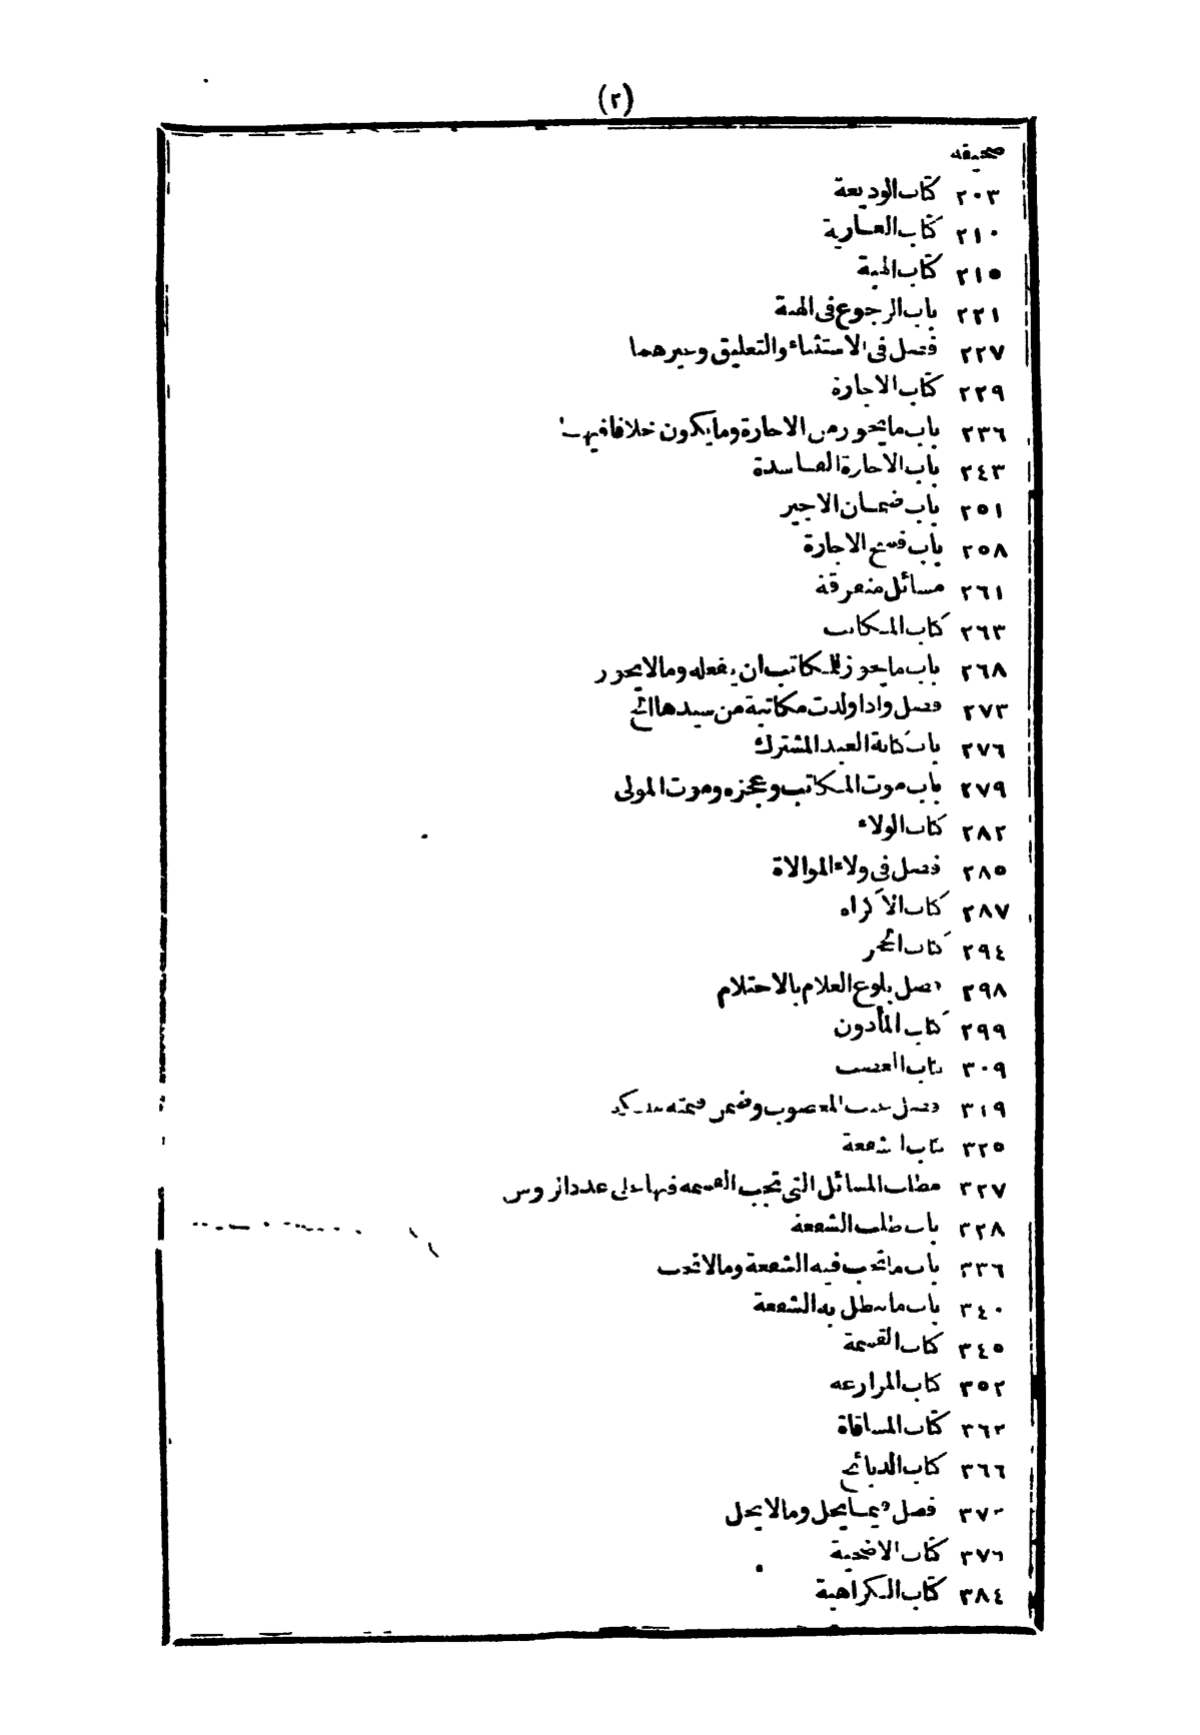 (٢)
صحيفه
٢٠٣ كتاب الوديعة
٢١٠ كتاب العارية
٢١٥ كتاب الهبة
٢٢١ باب الرجوع فى الهبة
٢٢٧ فصل فى الاستثناء والتعليق وغيرهما
٢٢٩ كتاب الاجارة
٢٣٦ باب ما يجوز من الاجارة وما يكون خلافا فيها
٢٤٣ باب الاجارة الفاسدة
٢٥١ باب ضمان الاجير
٢٥٨ باب فسخ الاجارة
٢٦١ مسائل متفرقة
٢٦٣ كتاب المكاتب
٢٦٨ باب ما يجوز للمكاتب ان يفعله وما لا يجوز
٢٧٣ فصل واذا ولدت مكاتبة من سيدها الخ
٢٧٦ باب كتابة العبد المشترك
٢٧٩ باب موت المكاتب وعجزه وموت المولى
٢٨٢ كتاب الولاء
٢٨٥ فصل فى ولاء الموالاة
٢٨٧ كتاب الاكراه
٢٩٤ كتاب الحجر
٢٩٨ فصل بلوغ الغلام بالاحتلام
٢٩٩ كتاب المأذون
٣٠٩ كتاب الغصب
٣١٩ فصل غيب المغصوب وضمن قيمته ملكه
٣٢٥ كتاب الشفعة
٣٢٧ مطلب المسائل التى تجب القسمه فيها على عدد الروس
٣٢٨ باب طلب الشفعة
٣٣٦ باب ما تجب فيه الشفعة وما لا تجب
٣٤٠ باب ما تبطل به الشفعة
٣٤٥ كتاب القسمة
٣٥٢ كتاب المزارعه
٣٦٢ كتاب المساقاة
٣٦٦ كتاب الذبائح
٣٧٢ فصل فيما يحل وما لا يحل
٣٧٦ كتاب الاضحية
٣٨٤ كتاب الكراهية